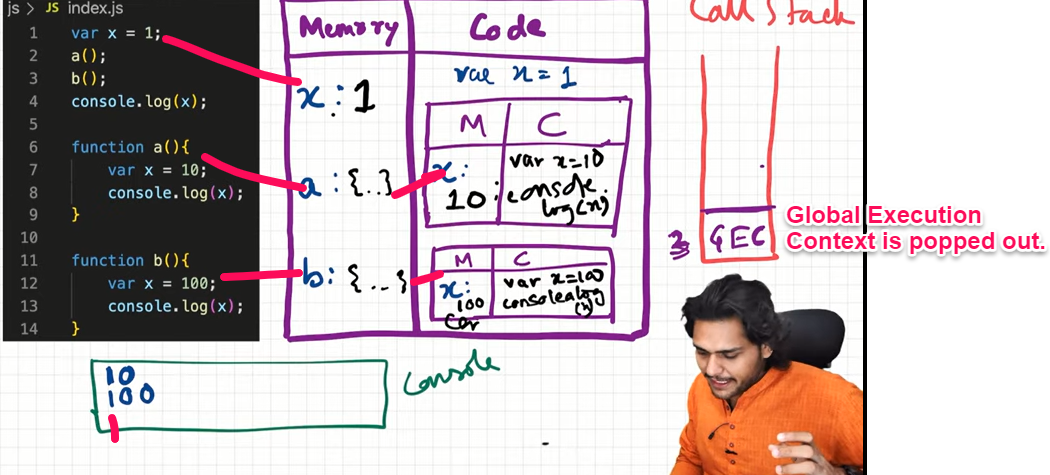 js > JS index.js
1 var x = 1;
2 a();
3 b();
4 console.log(x);
5
6 function a(){
7 var x = 10;
8 console.log(x);
9 }
10
11 function b(){
12 var x = 100;
13 console.log(x);
14 }
Memory
Code
x : 1
var x = 1
a : {..}
M
C
x:
10
var x=10
console.
log(x)
b: {..}
M
C
x:
100
var x=100
console.log
(x)
Call Stack
GEC
Global Execution
Context is popped out.
10
100
1
Console